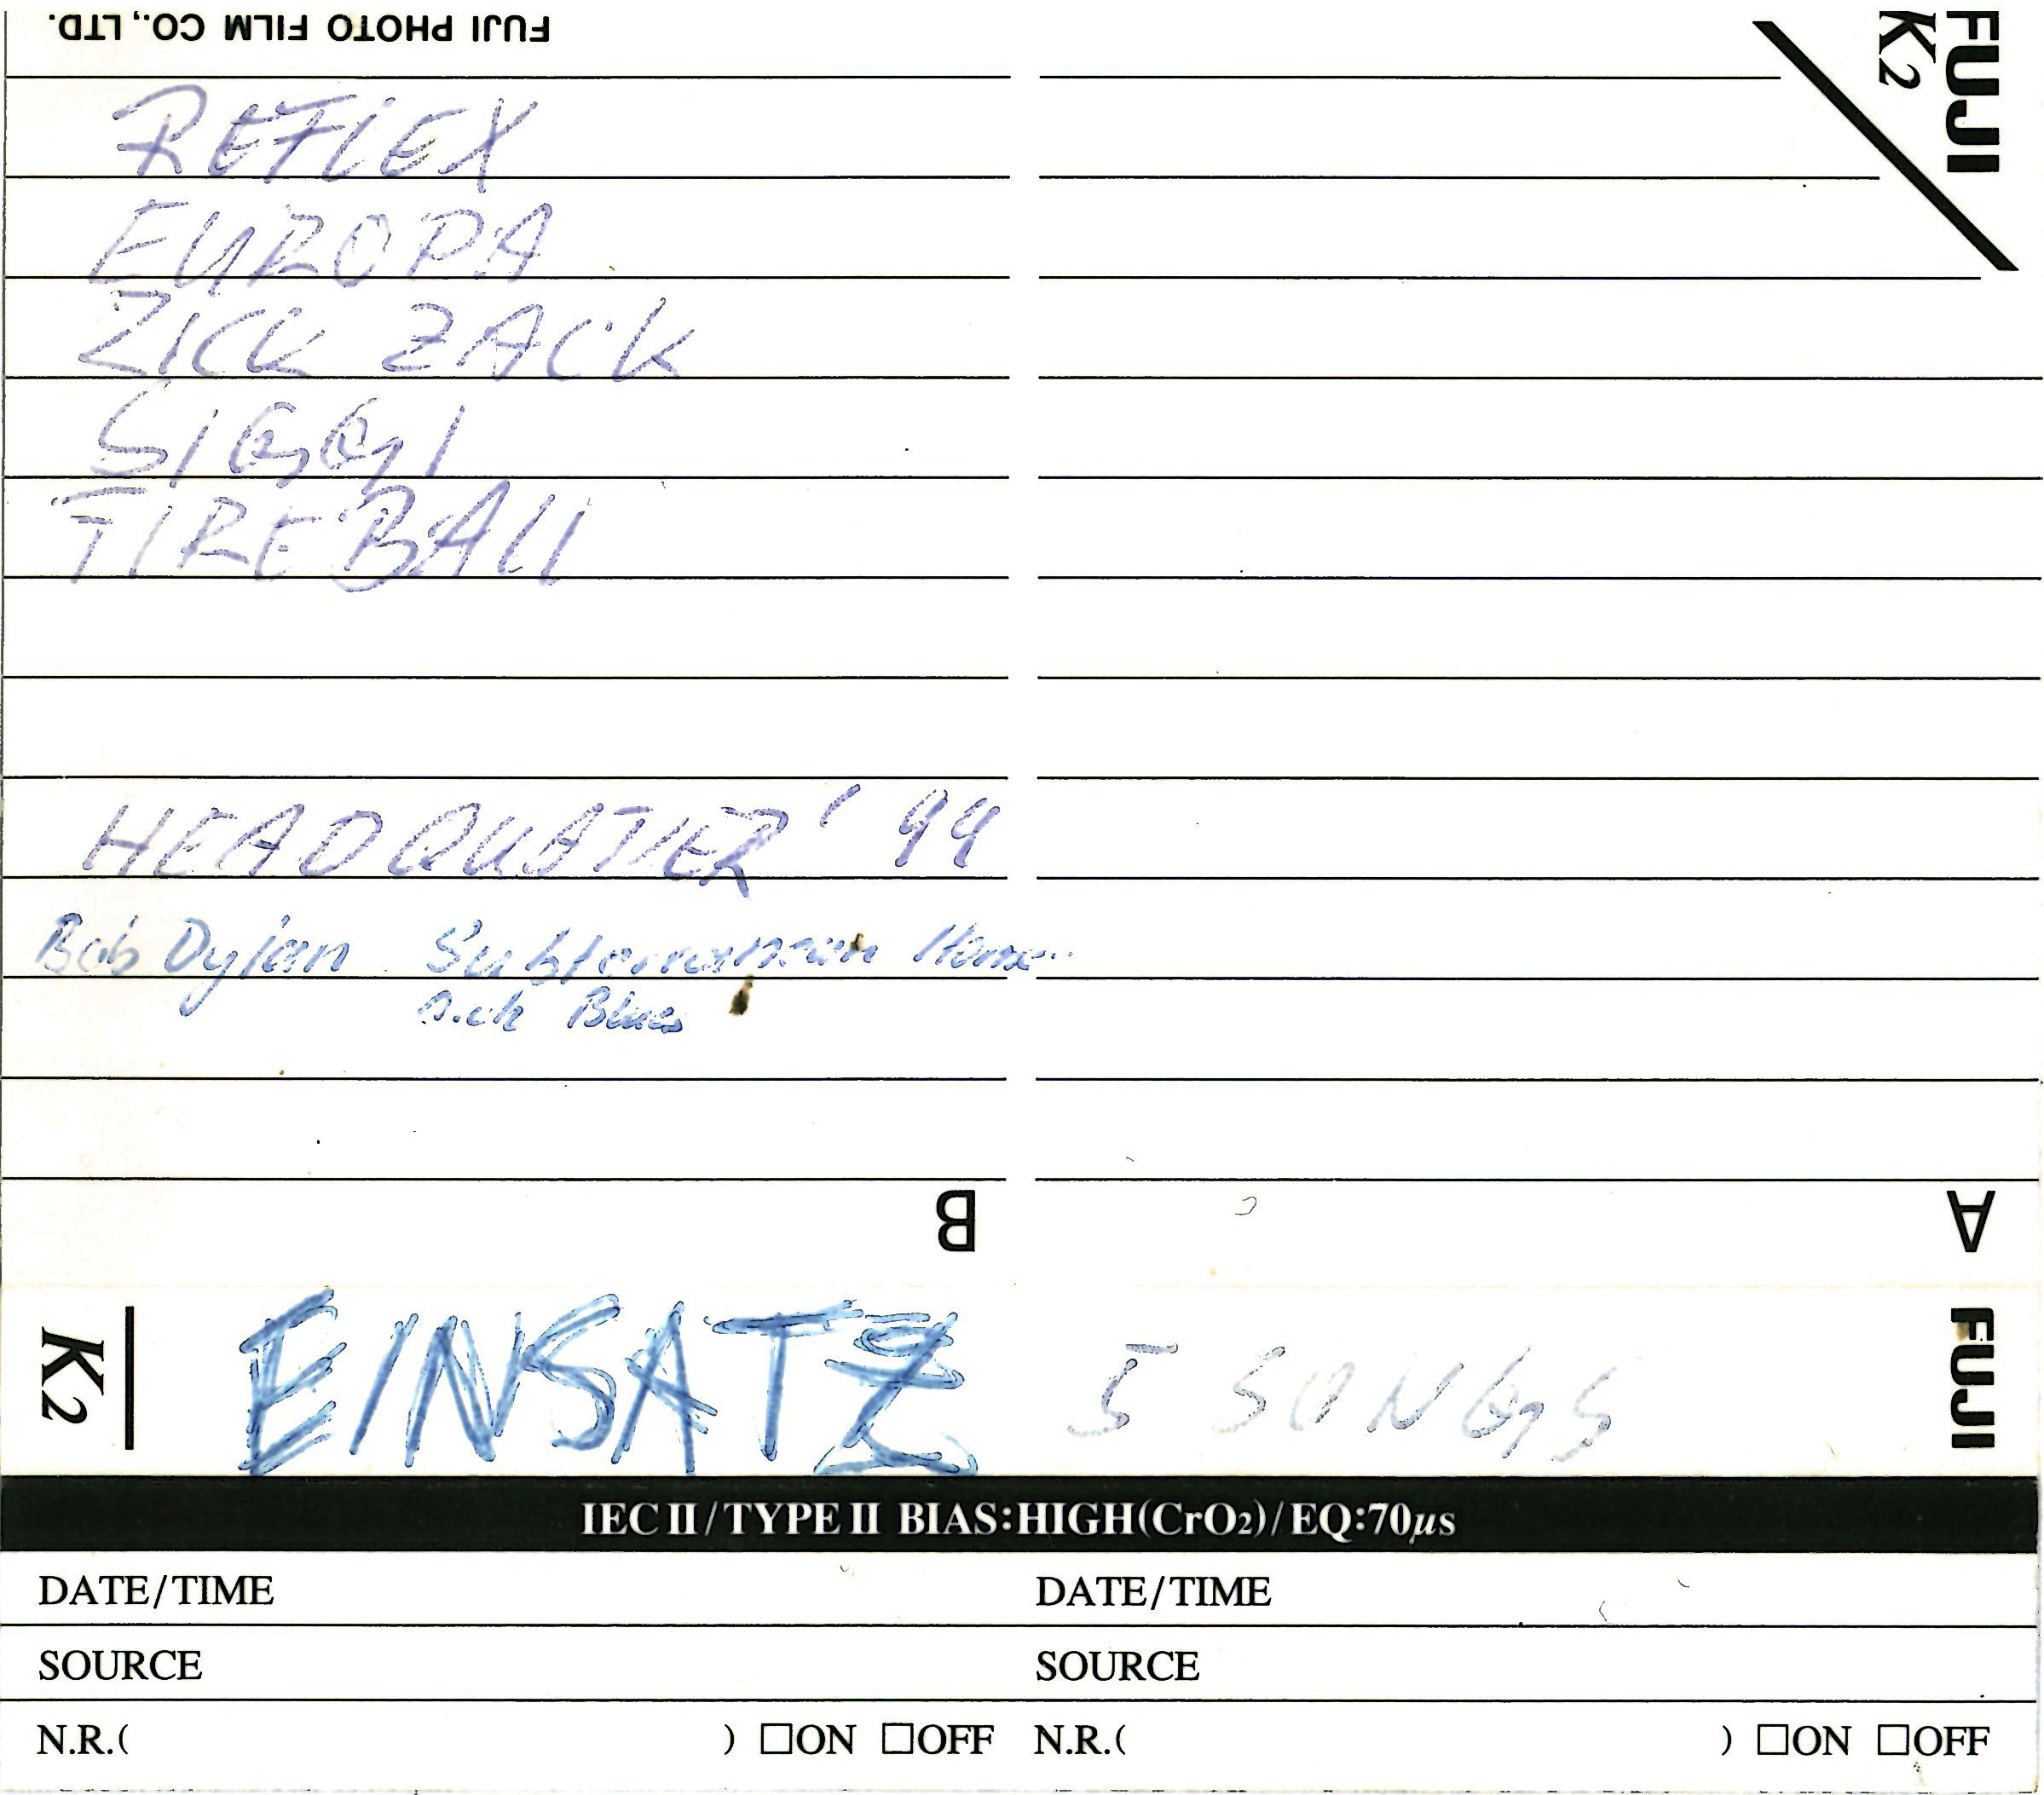 FUJI PHOTO FILM CO., LTD.
FUJI
K2
REFLEX
EUROPA
ZICK ZACK
SIGGI
FIREBALL
HEADQUATIER '99
Bob Dylan Subterranean Home..
sick Blues
B
A
K2
EINSATZ 5 SONGS
FUJI
IEC II/TYPE II BIAS:HIGH(CrO2)/EQ:70µs
DATE/TIME DATE/TIME
SOURCE SOURCE
N.R.( ) □ON □OFF N.R.( ) □ON □OFF